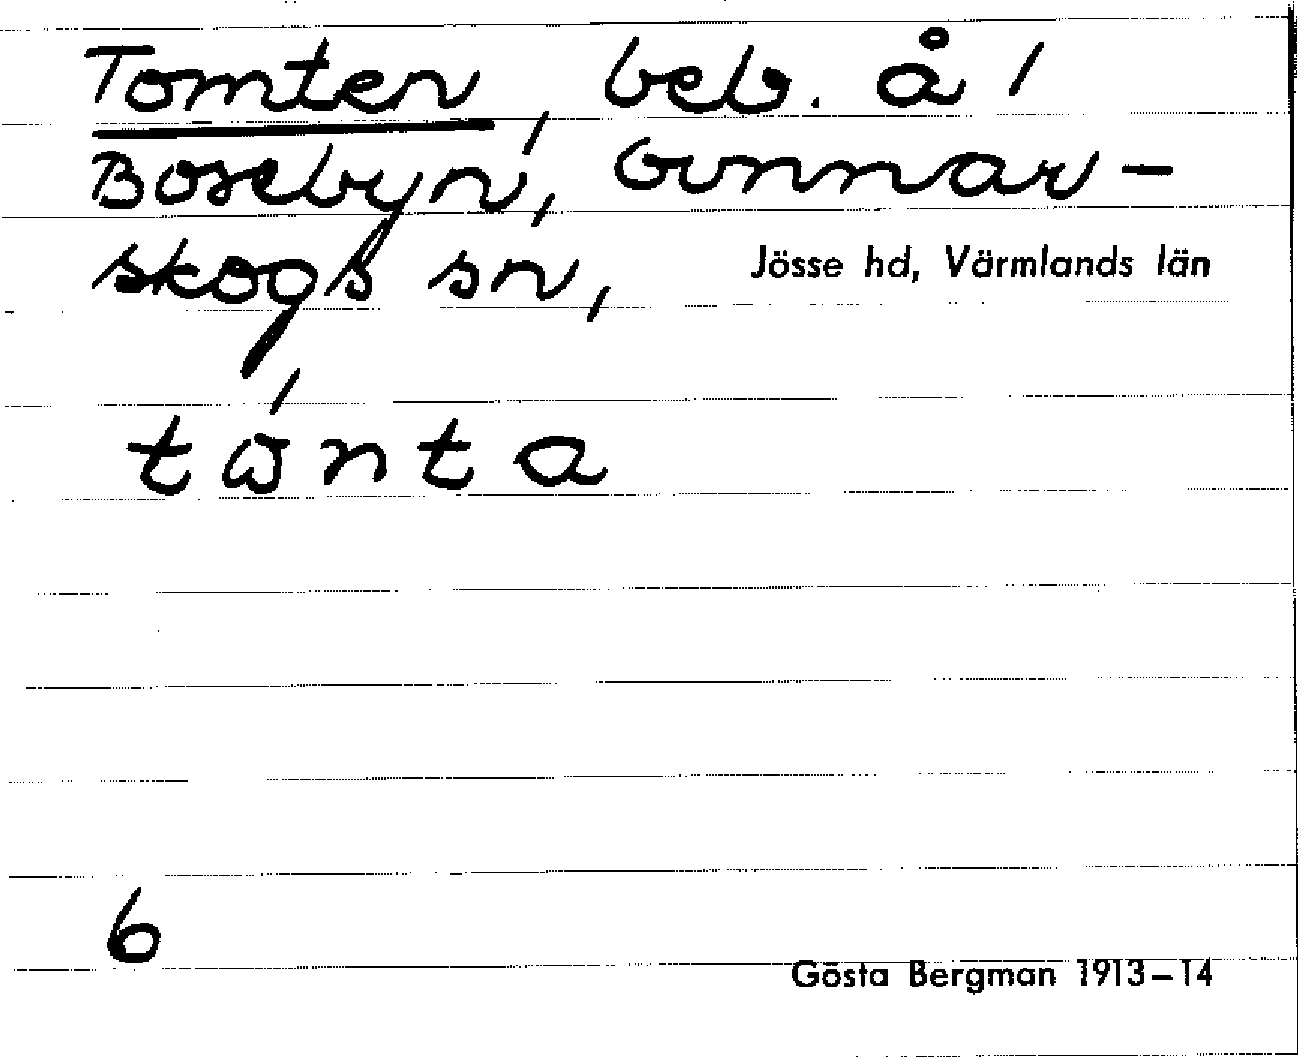 Tomten, beb. å 1
Bosebyn, Gunnar-
skogs sn, Jösse hd, Värmlands län
tɷ́nta
6
Gösta Bergman 1913–14